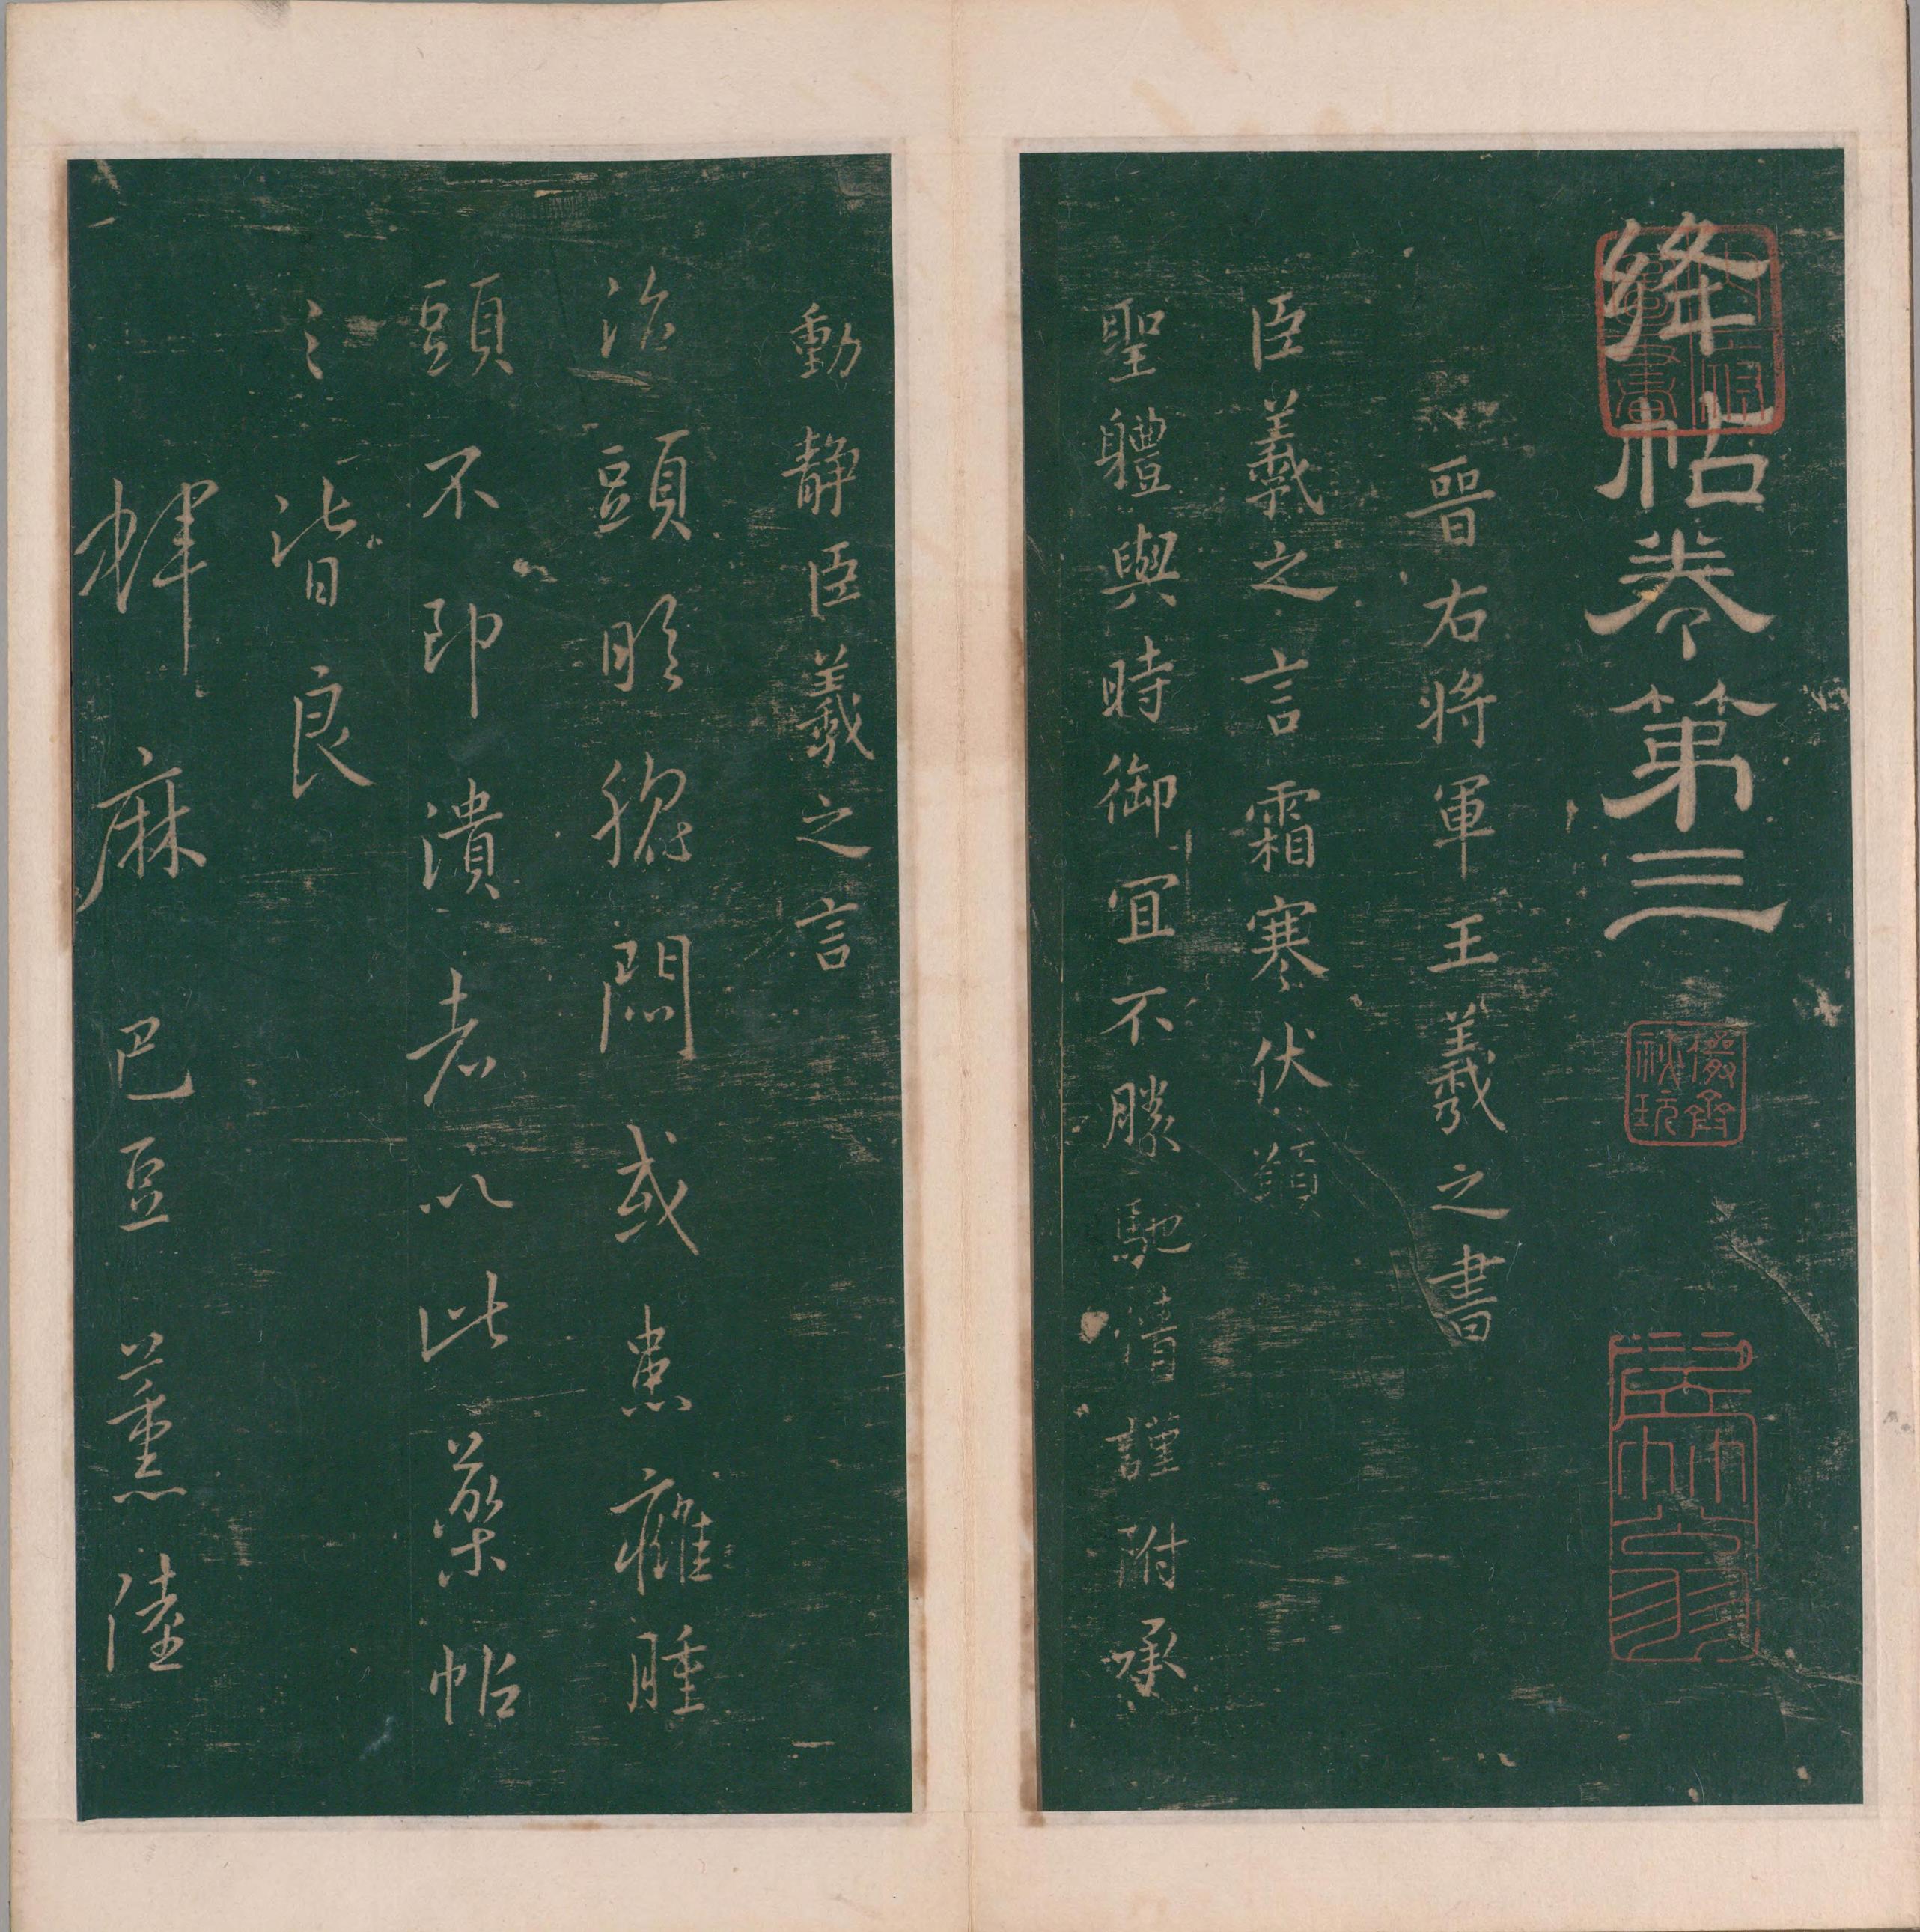 絳帖卷第三
儼齋秘玩
晉右將軍王羲之書
臣羲之言霜寒伏願
聖體與時御宜不勝馳情謹附承
動静臣羲之言
治頭眩脳悶或患癰腫
頭不即潰者以此藥帖
之皆良
蜱麻 巴豆 薰陸